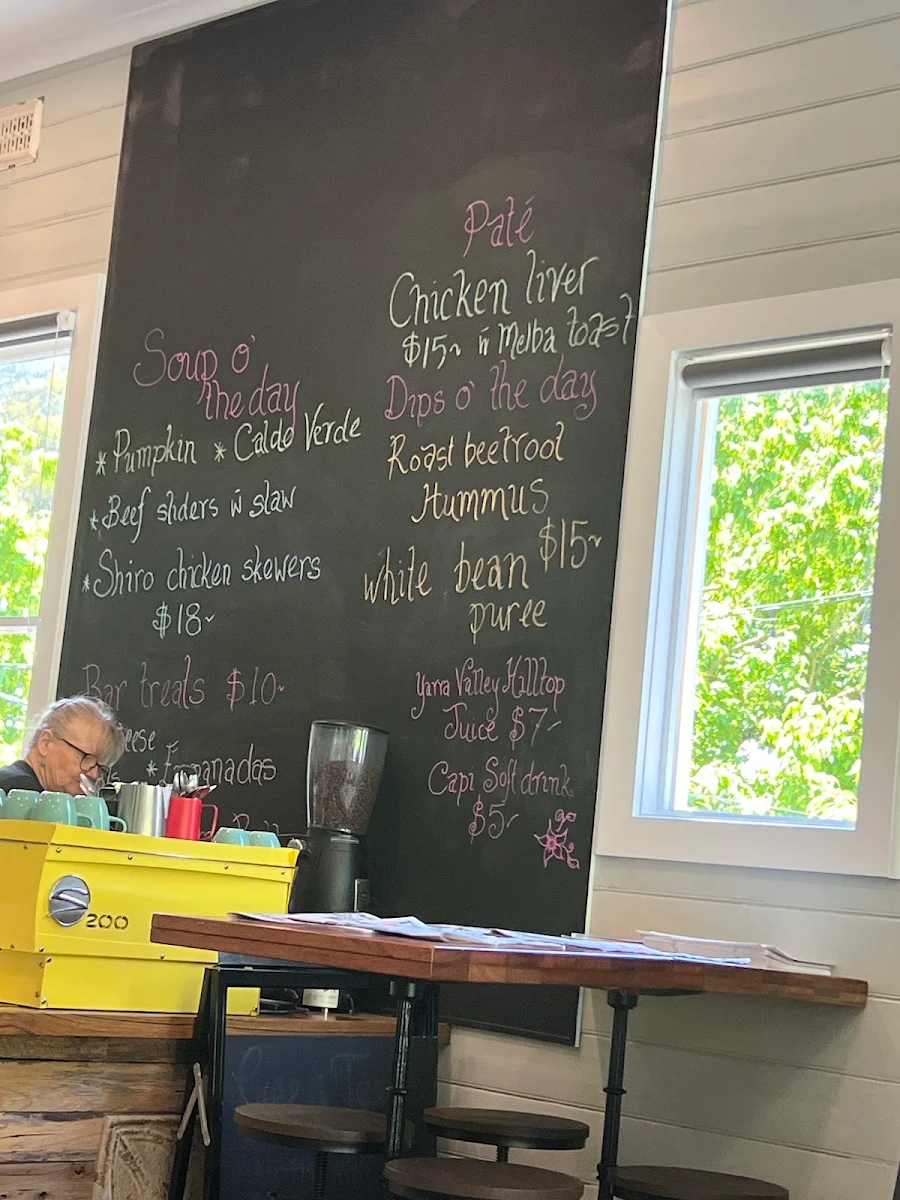 Soup o'
the day
* Pumpkin * Caldo Verde
* Beef sliders w slaw
* Shiro chicken skewers
$18~
Bar treats $10~
* Empanadas
Paté
Chicken liver
$15~ w Melba toast
Dips o' the day
Roast beetroot
Hummus
$15~
white bean
puree
Yarra Valley Hilltop
Juice $7~
Capi Soft drink
$5~
200